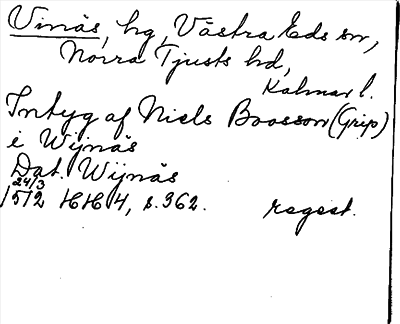 Vinäs, hg, Västra Eds sn,
Norra Tjusts hd,
Kalmar l.
Intyg af Niels Boosson (Grip)
i Wijnäs
Dat. Wijnäs
24/3
1512 HH 4, s. 362. regest.